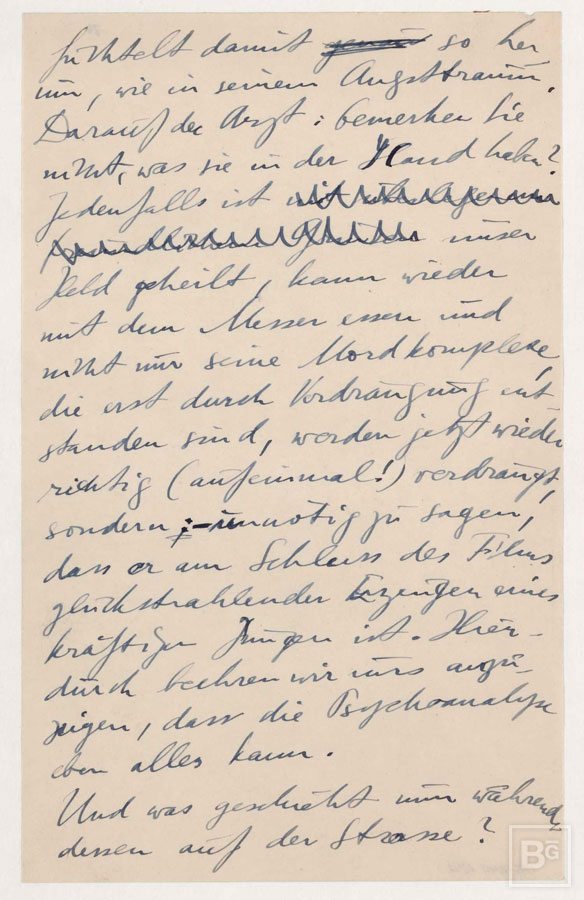 fuchtelt damit so her
um, wie in seinem Angsttraum.
Darauf der Arzt: bemerken Sie
nicht, was sie in der Hand haben?
Jedenfalls ist
unser
Held geheilt, kann wieder
mit dem Messer essen und
nicht nur seine Mordkomplexe,
die erst durch Verdrängung ent
standen sind, werden jetzt wieder
richtig (aufeinmal!) verdrängt,
sondern :– unnötig zu sagen,
dass er am Schluss des Films
glückstrahlender Erzeuger eines
kräftigen Jungen ist. Hier-
durch beehren wir uns anzu-
zeigen, dass die Psychoanalyse
eben alles kann.
Und was geschieht nun während
dessen auf der Strasse?
BG